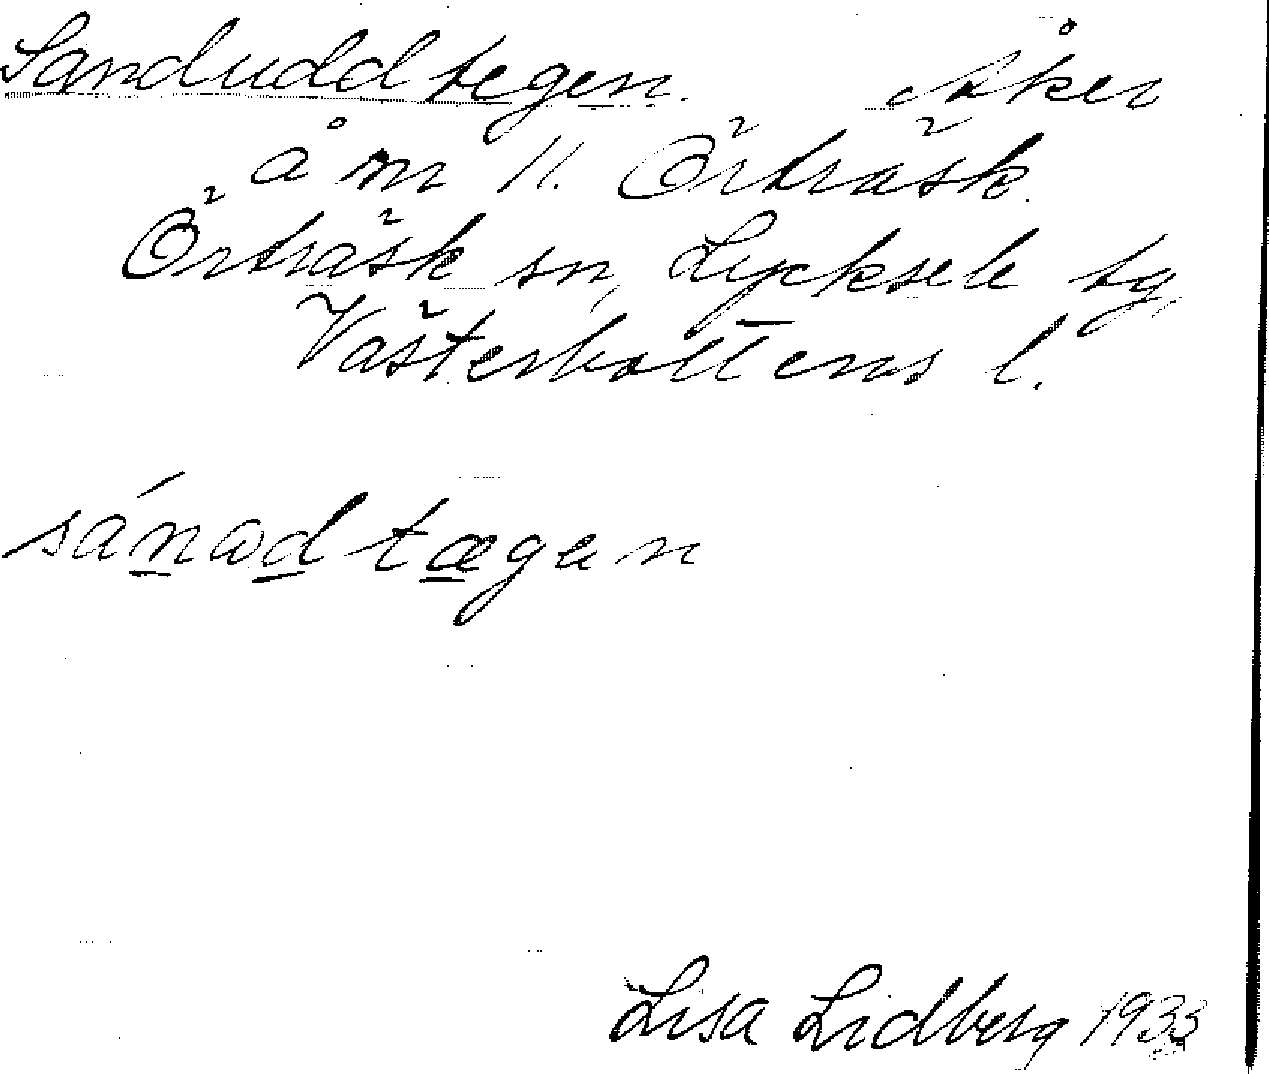 Sanduddtegen. Åker
å nr 11. Örträsk.
Örträsk sn, Lycksele tg,
Västerbottens l.
sánωdtægen
Lisa Lidberg 1933